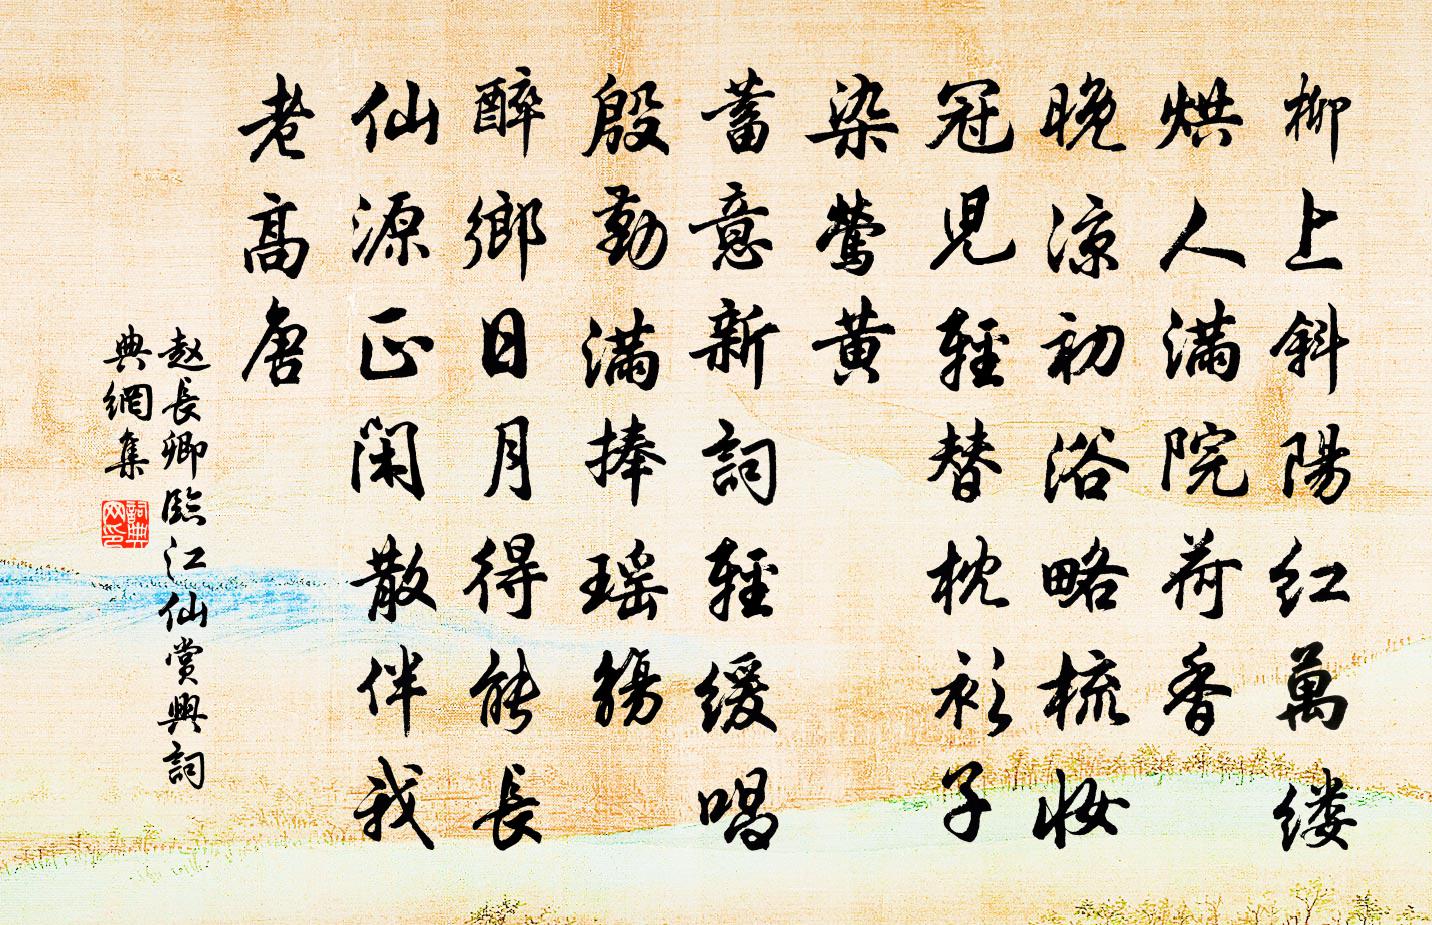 柳上斜陽红萬缕
烘人满院荷香
晚凉初浴略梳妆
冠儿輕替枕衫子
染鶯黄
蓄意新詞輕缓唱
殷勤满捧瑶觴
醉鄉日月得能長
仙源正闲散伴我
老高唐
赵長卿臨江仙賞興詞
典網集
詞典网印